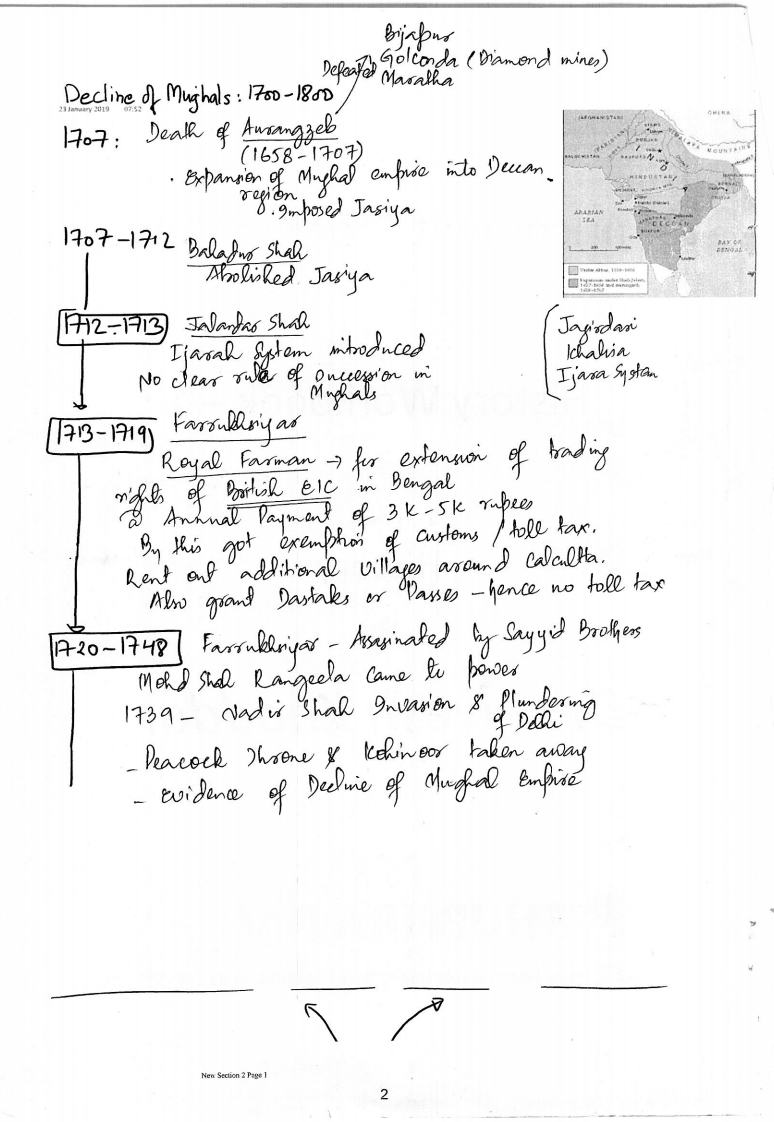 Bijapur
Golconda (Diamond mines)
Maratha
Defeated
Decline of Mughals : 1700-1800
23 January 2019 07:52
1707: Death of Aurangzeb
(1658-1707)
. Expansion of Mughal empire into Deccan
region
. Imposed Jasiya
(AFGHANISTAN)
CHINA
(PAKISTAN)
PUNJAB
HIMALAYA MOUNTAINS
BALUCHISTAN
INDIA
HINDUSTAN
BENGAL
ARABIAN
SEA
DECCAN
BAY OF
BENGAL
1707-1712 Bahadur Shah
Abolished Jasiya
1712-1713 Jalandar Shah
Ijarah System introduced
No clear rule of succession in
Mughals
Jagirdari
Khalisa
Ijara System
1713-1719 Farrukhsiyar
Royal Farman → for extension of trading
rights of British EIC in Bengal
@ Annual Payment of 3K-5K rupees
By this got exemption of customs / toll tax.
Rent out additional villages around Calcutta.
Also grant Dastaks or Passes - hence no toll tax
1720-1748 Farrukhsiyar - Assasinated by Sayyid Brothers
Mohd Shah Rangeela came to power
1739 - Nadir Shah Invasion & Plundering
of Delhi
- Peacock Throne & Kohinoor taken away
- Evidence of Decline of Mughal Empire
New Section 2 Page 1
2